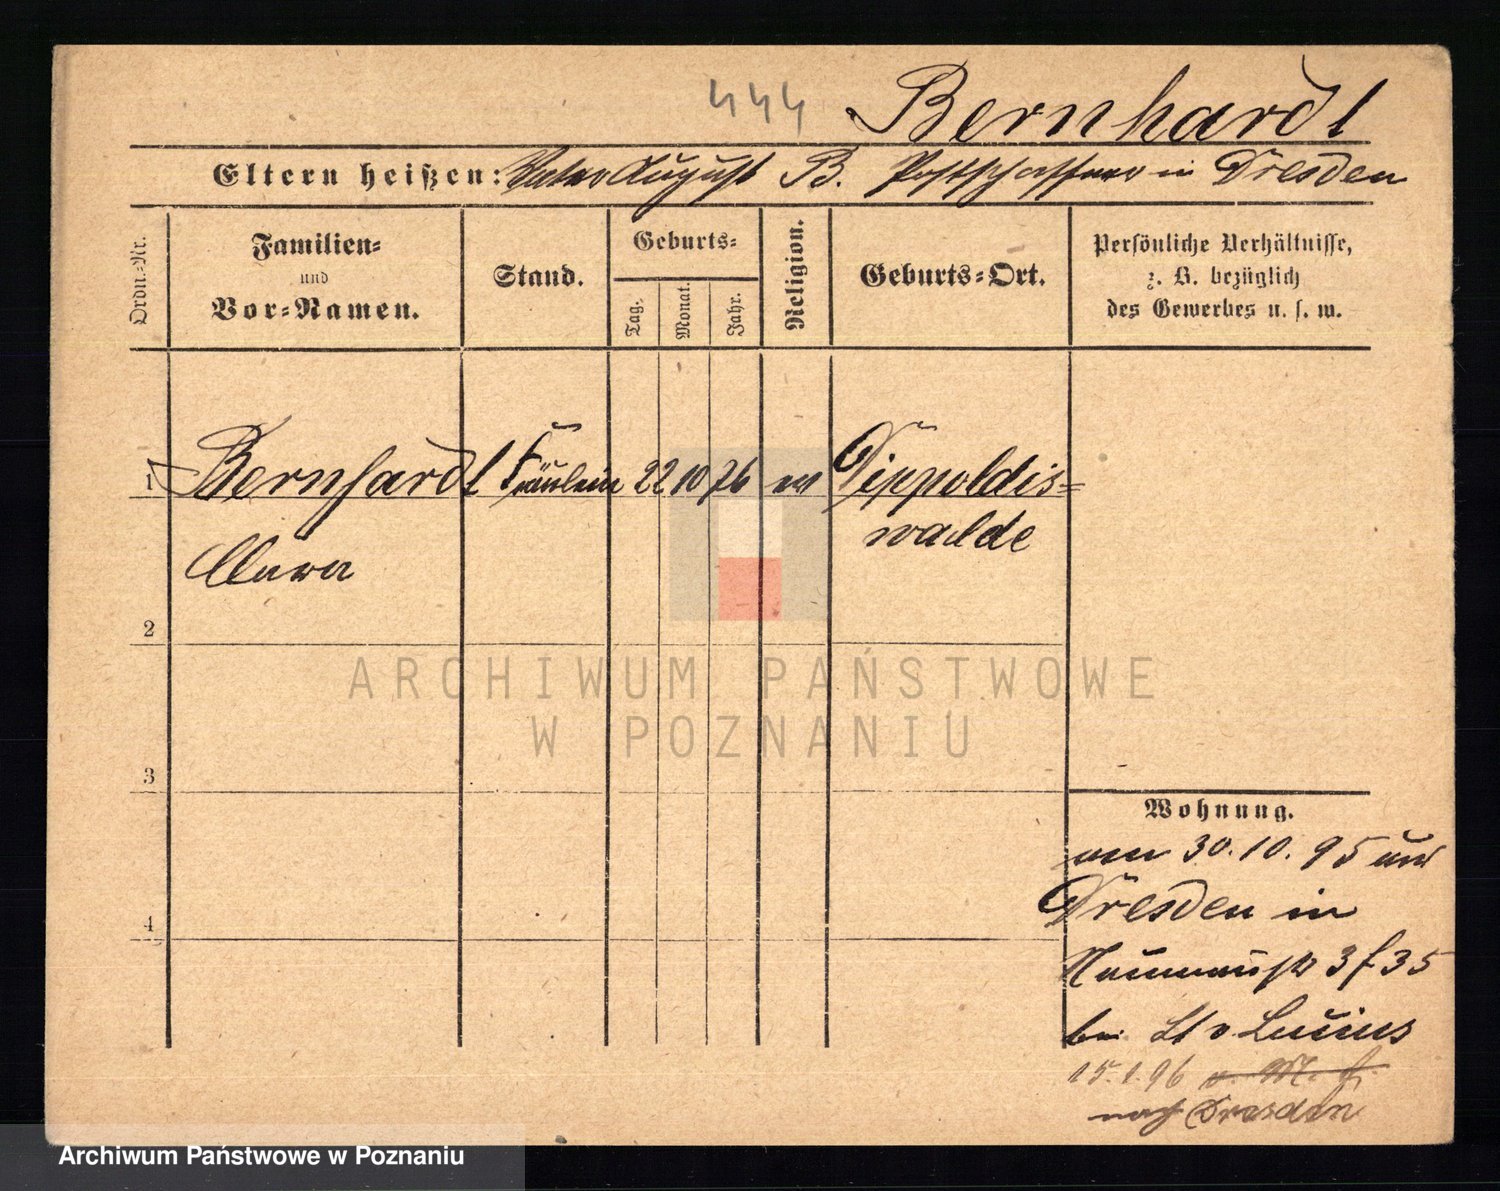 444 Bernhardt
Eltern heißen: Vater August B. Postschaffner in Dresden
Ordn.=Nr.
Familien=
und
Vor=Namen.
Stand.
Geburts=
Tag.
Monat.
Jahr.
Religion.
Geburts=Ort.
Persönliche Verhältnisse,
z. B. bezüglich
des Gewerbes u. s. w.
1 Bernhardt Fräulein 22 10 76 ev Dippoldis=
walde
Clara
2
3
4
ARCHIWUM PAŃSTWOWE
W POZNANIU
Wohnung.
am 30.10.95 aus
Dresden in
Naumannstr 3 f 35
bei Lt v Lucius
15.1.96
nach Dresden
Archiwum Państwowe w Poznaniu